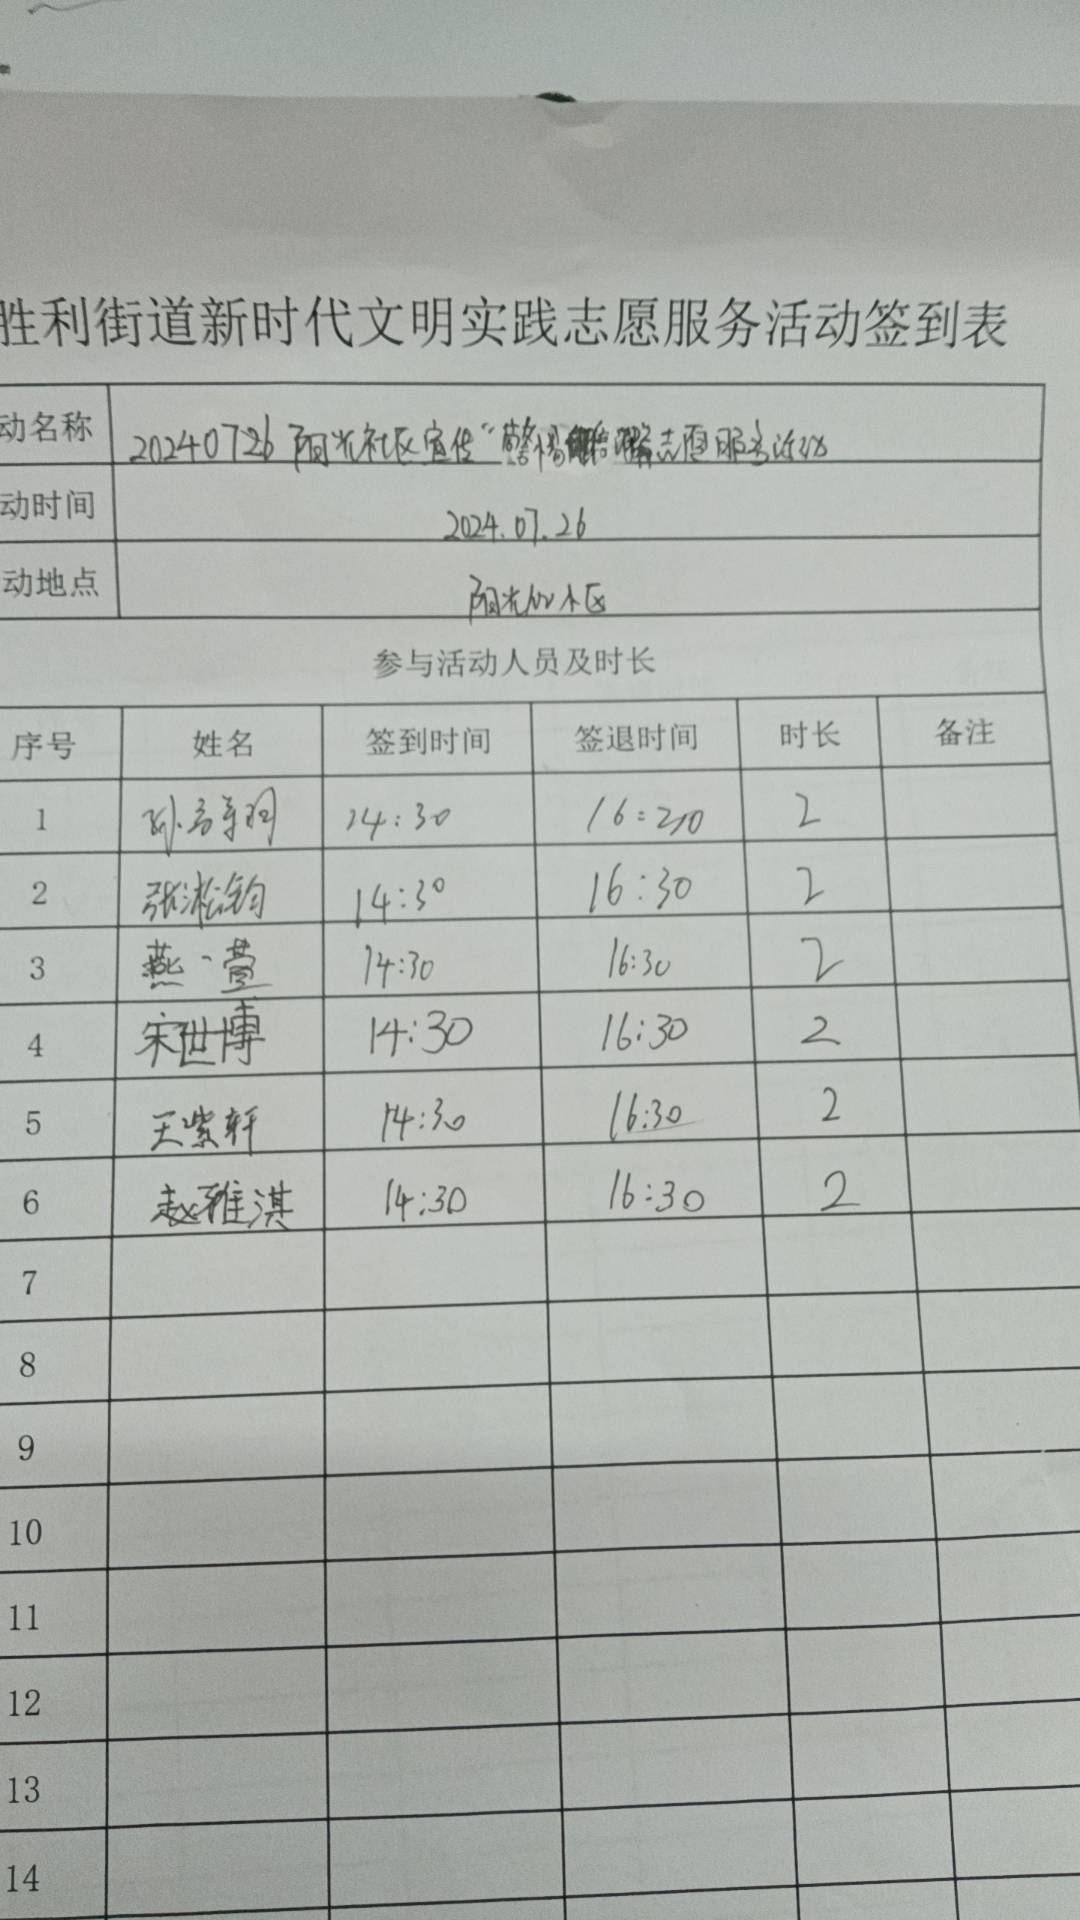 胜利街道新时代文明实践志愿服务活动签到表
动名称 20240726 阳光社区宣传“警惕 志愿服务活动
动时间 2024.07.26
动地点 阳光 小区
参与活动人员及时长
序号 姓名 签到时间 签退时间 时长 备注
1 14:30 2
2 张淞钧 14:30 16:30 2
3 燕一萱 14:30 16:30 2
4 宋世博 14:30 16:30 2
5 王紫轩 14:30 16:30 2
6 赵雅淇 14:30 16:30 2
7
8
9
10
11
12
13
14